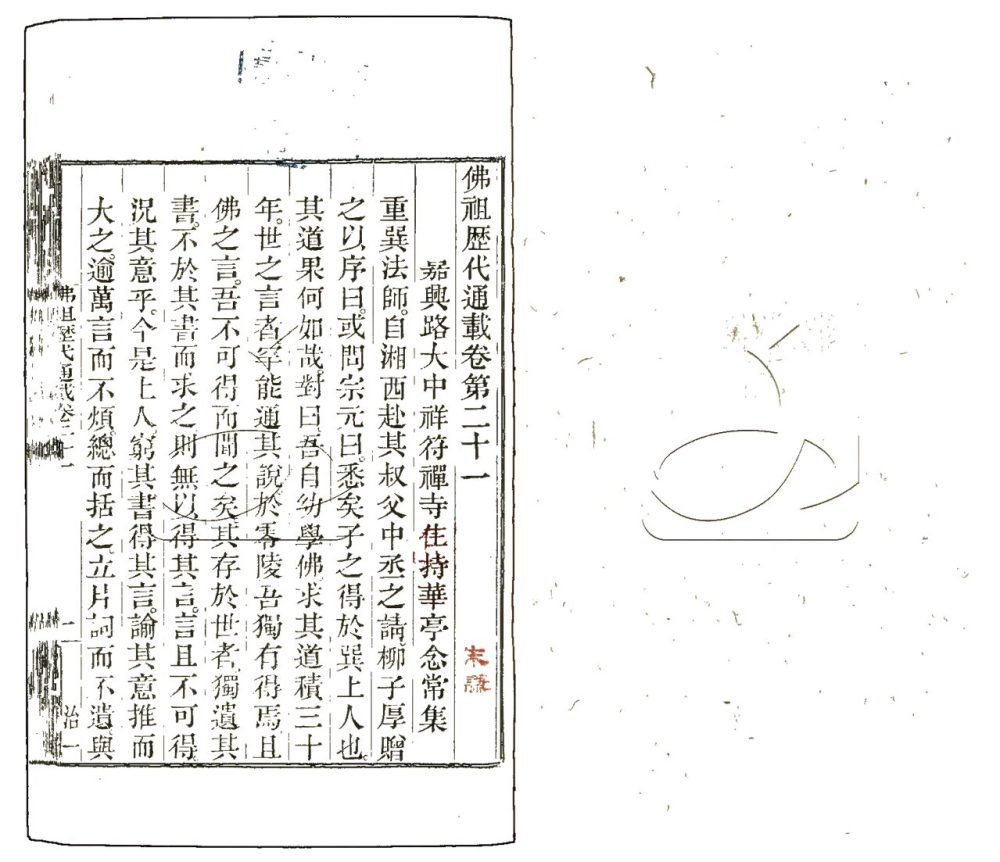 佛祖歷代通載卷第二十一
嘉興路大中祥符禪寺住持華亭念常集
重巽法師。自湘西赴其叔父中丞之請。柳子厚贈
之以序曰。或問宗元曰。悉矣子之得於巽上人也。
其道果何如哉。對曰。吾自幼學佛求其道積三十
年。世之言者罕能通其說。於零陵吾獨有得焉。且
佛之言。吾不可得而聞之矣。其存於世者。獨遺其
書。不於其書而求之。則無以得其言。言且不可得。
況其意乎。今是上人。窮其書得其言。諭其意推而
大之。逾萬言而不煩。總而括之。立片詞而不遺。與
佛祖歷代通載卷二十一
一
治一